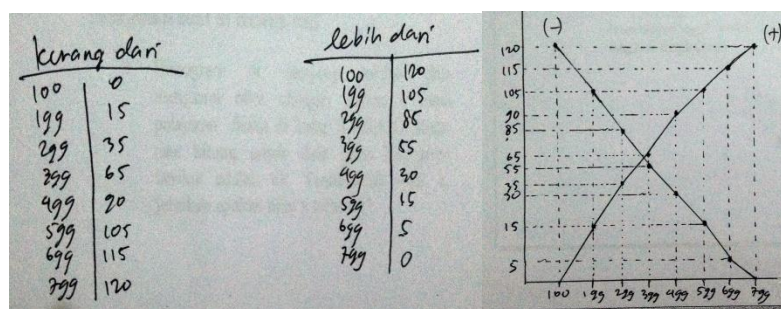 kurang dari
100 0
199 15
299 35
399 65
499 90
599 105
699 115
799 120
lebih dari
100 120
199 105
299 85
399 55
499 30
599 15
699 5
799 0
(-) (+)
120
115
105
90
85
65
55
35
30
15
5
100 199 299 399 499 599 699 799